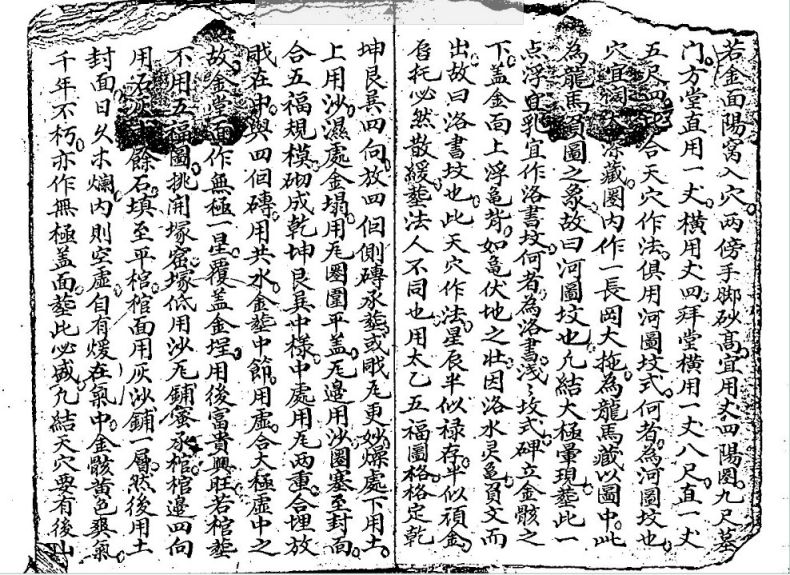 若金面陽窩入穴两傍手脚砂髙宜用丈四陽圏九尺墓
门方堂直用一丈横用丈四拜堂横用一丈八尺直一丈
五尺四合天穴作法俱用河圖坟式何者為河圖坟也
穴宜濶深藏圏内作一長岡大拖為龍馬藏以圖中此
為龍馬負圖之象故曰河圖坟也凢結大極暈現塟此一
点浮宜乳宜作洛書坟何者為洛書浅坟式碑立金骸之
下盖金面上浮龜背如龜伏地之壮因洛水灵龜負文而
出故曰洛書坟也此天穴作法星辰半似禄存半似頑金
唇托必然散緩塟法人不同也用太乙五福圖格格定乾
坤艮巽四向放四个側磚承塟或瓦更妙燥處下用土
上用沙濕處金塌用瓦圏圍平盖瓦邉用沙圏塞至封面
合五福規模砌成乾坤艮巽中樣中處用瓦两重合埋放
戝在中與四個磚用共水金塟中節用虚合大極虚中之
故金堂面作無極一星覆盖金埕用後富貴興旺若棺塟
不用五福圖挑開塚窩塚低用沙瓦鋪蜜承棺棺邉四向
用石灰餘石填至平棺棺面用灰沙鋪一層然後用土
封面日久木爛内則空虚自有煖在氣中金骸黄色爽氣
千年不朽亦作無極盖面塟此必盛凢結天穴要有後山